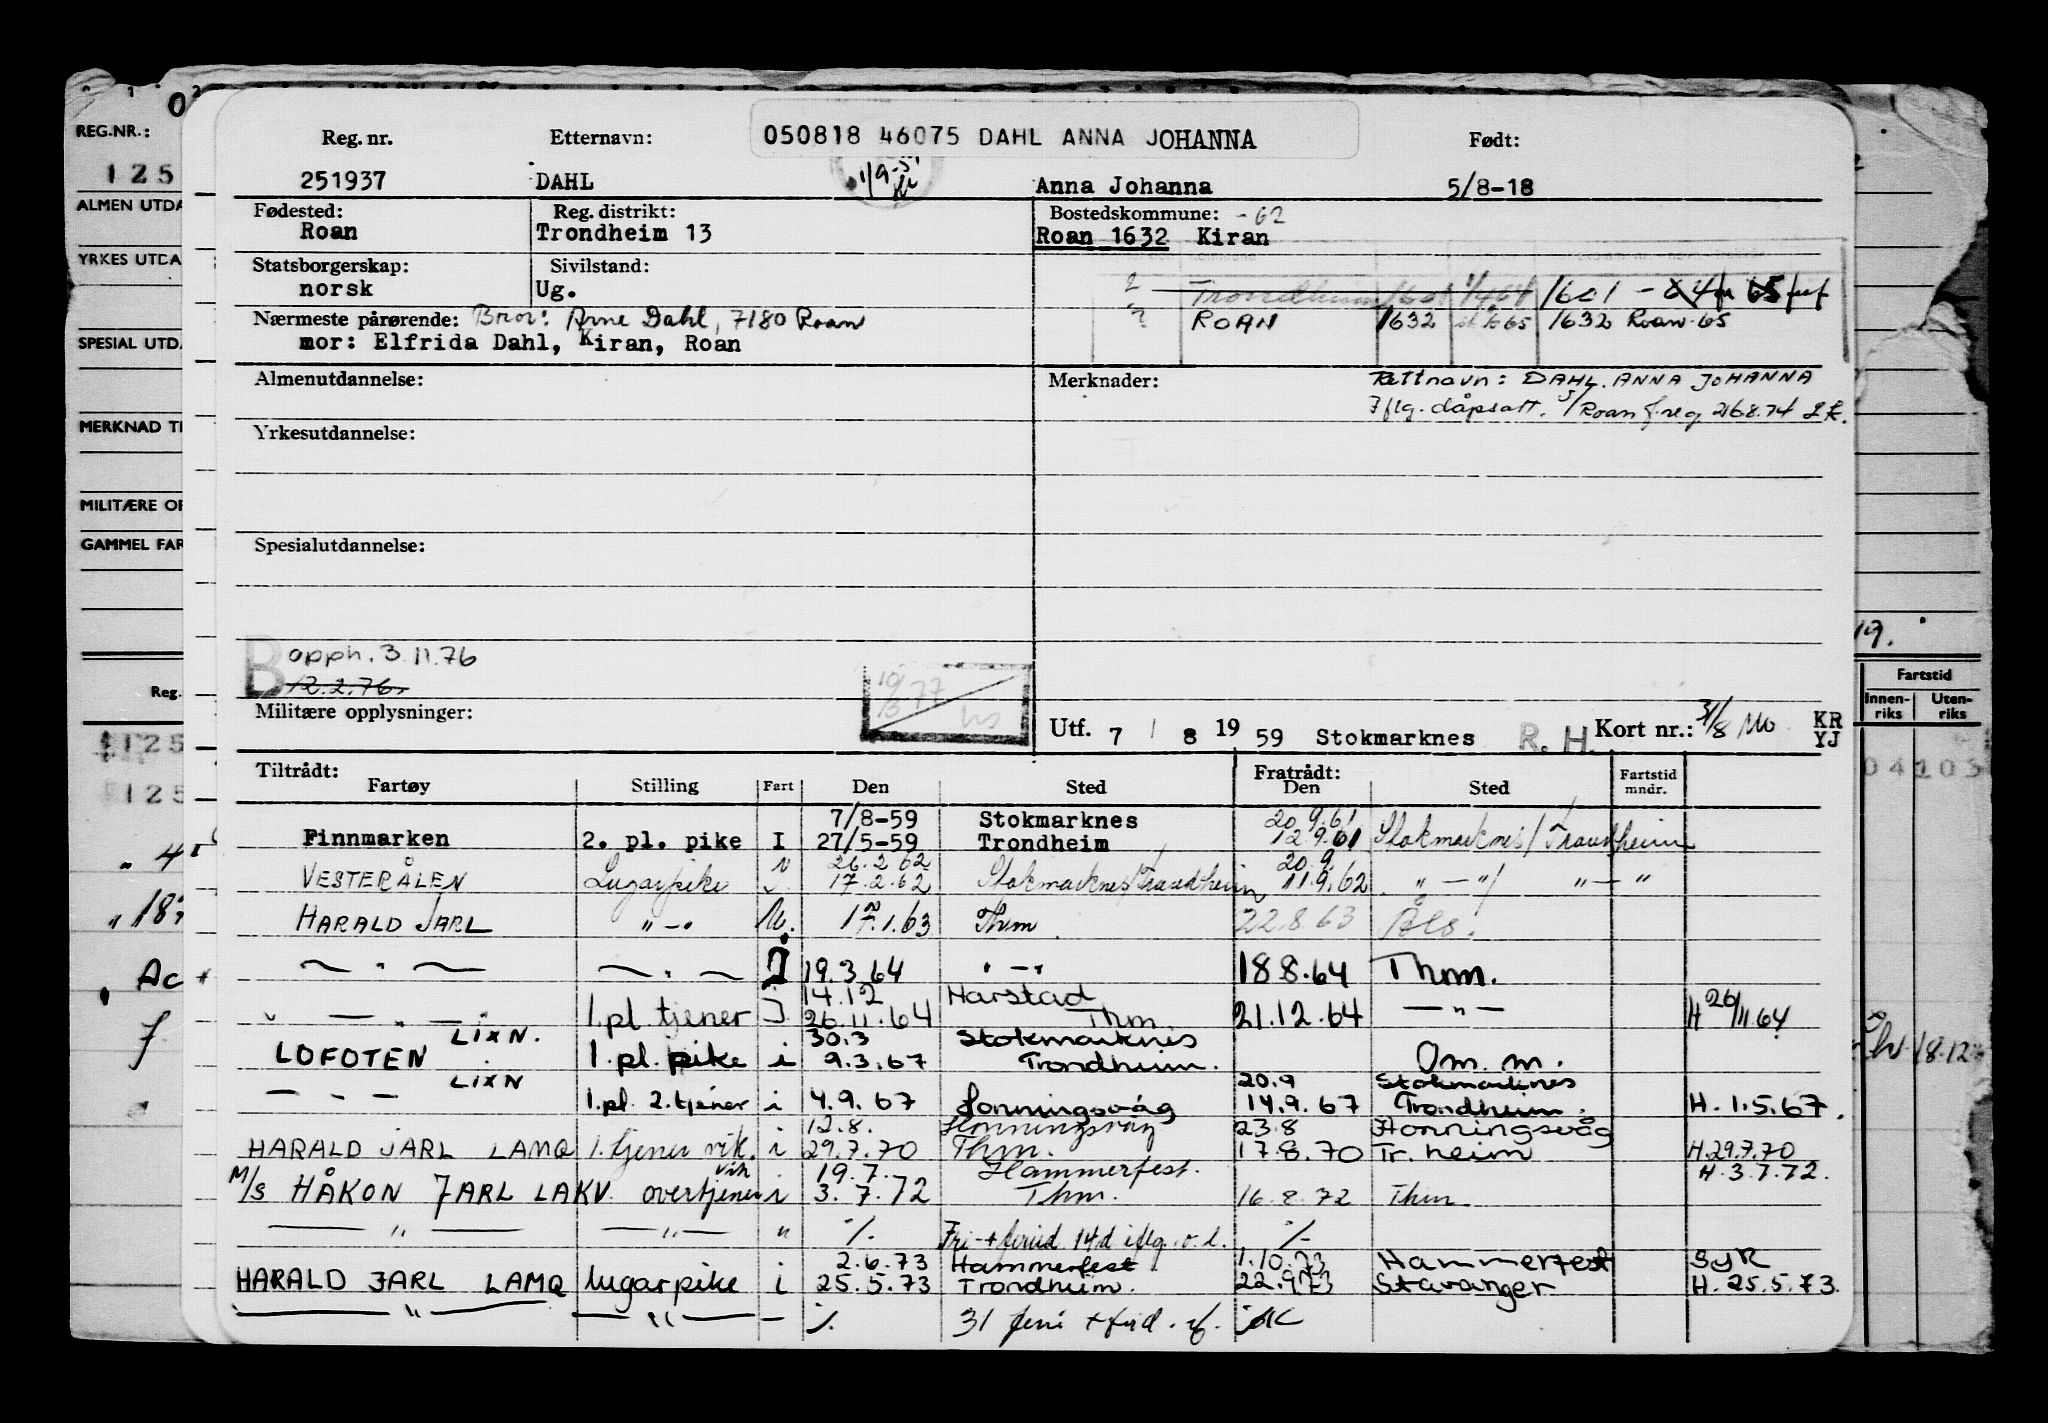 050818 46075 DAHL ANNA JOHANNA
Reg. nr. Etternavn: Født:
251937 DAHL Anna Johanna 5/8-18
Fødested: Reg. distrikt: Bostedskommune: -62
Roan Trondheim 13 Roan 1632 Kiran
Statsborgerskap: Sivilstand:
norsk Ug.
Trondheim 1601
Nærmeste pårørende: Bror: Arne Dahl, 7180 Roan
ROAN 1632 1632 Roan-65
mor: Elfrida Dahl, Kiran, Roan
Almenutdannelse: Merknader: Rettnavn: DAHL. ANNA JOHANNA
Iflg. dåpsatt. Roan f.reg
Yrkesutdannelse:
Spesialutdannelse:
B opph. 3.11.76
12.2.76
Militære opplysninger:
Utf. 7 / 8 19 59 Stokmarknes R. H. Kort nr.: KR
YJ
Tiltrådt: Fratrådt:
Fartøy Stilling Fart Den Sted Den Sted Fartstid mndr.
7/8-59 Stokmarknes 20.9.61
Finnmarken 2. pl. pike I 27/5-59 Trondheim 12.9.61 Stokmarknes/Trondheim
26.2.62 20.9.
VESTERÅLEN Lugarpike 17.2.62 Stokmarknes/Trondheim 11.9.62 " — "/ " — "
HARALD JARL " — " 17.1.63 Thm 22.8.63
— " — — " — 19.3.64 " — " 18.8.64 Thm.
14.12 Harstad
— " — 1.pl. tjener 26.11.64 Thm. 21.12.64 — " — H 26/11 64
LIXN. 30.3 Stokmarknes
LOFOTEN 1. pl. pike i 9.3.67 Trondheim. Om. m.
LIXN 20.9 Stokmarknes
— " — 1.pl. 2. tjener i 4.9.67 Honningsvåg 14.9.67 Trondheim. H. 1.5.67.
12.8. Honningsvåg 23.8 Honningsvåg
HARALD JARL LAMQ 1. tjener vik. i 29.7.70 Thm. 17.8.70 Tr.heim H.29.7.70
vik 19.7. Hammerfest. H. 3.7.72.
M/S HÅKON JARL LAKV. overtjener i 3.7.72 Thm. 16.8.72 Thm.
— " — — " — " ./.
2.6.73 Hammerfest 1.10.73 Hammerfest
HARALD JARL LAMQ lugarpike i 25.5.73 Trondheim. 22.9.73 Stavanger H. 25.5.73.
— " — — " — — ./.
REG.NR.:
125
ALMEN UTDA
YRKES UTDA
SPESIAL UTD.
MERKNAD TI
MILITÆRE OP
GAMMEL FAR
Reg.
125
125
19.
Fartstid
Innen-riks Uten-riks
04103
18.12